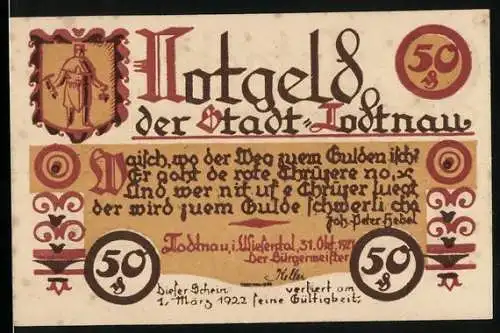 Notgeld
50 ₰
der Stadt=Todtnau
Waisch, wo der Weg zuem Gulden isch?
Er goht de rote Chrüzere no,
Und wer nit uf e Chrüzer luegt
der wird zuem Gulde schwerli cho
Joh. Peter Hebel
Todtnau, i. Wiesental, 31. Okt. 1921
Der Bürgermeister
50 ₰
50 ₰
Dieser Schein verliert am
1. März 1922 seine Gültigkeit